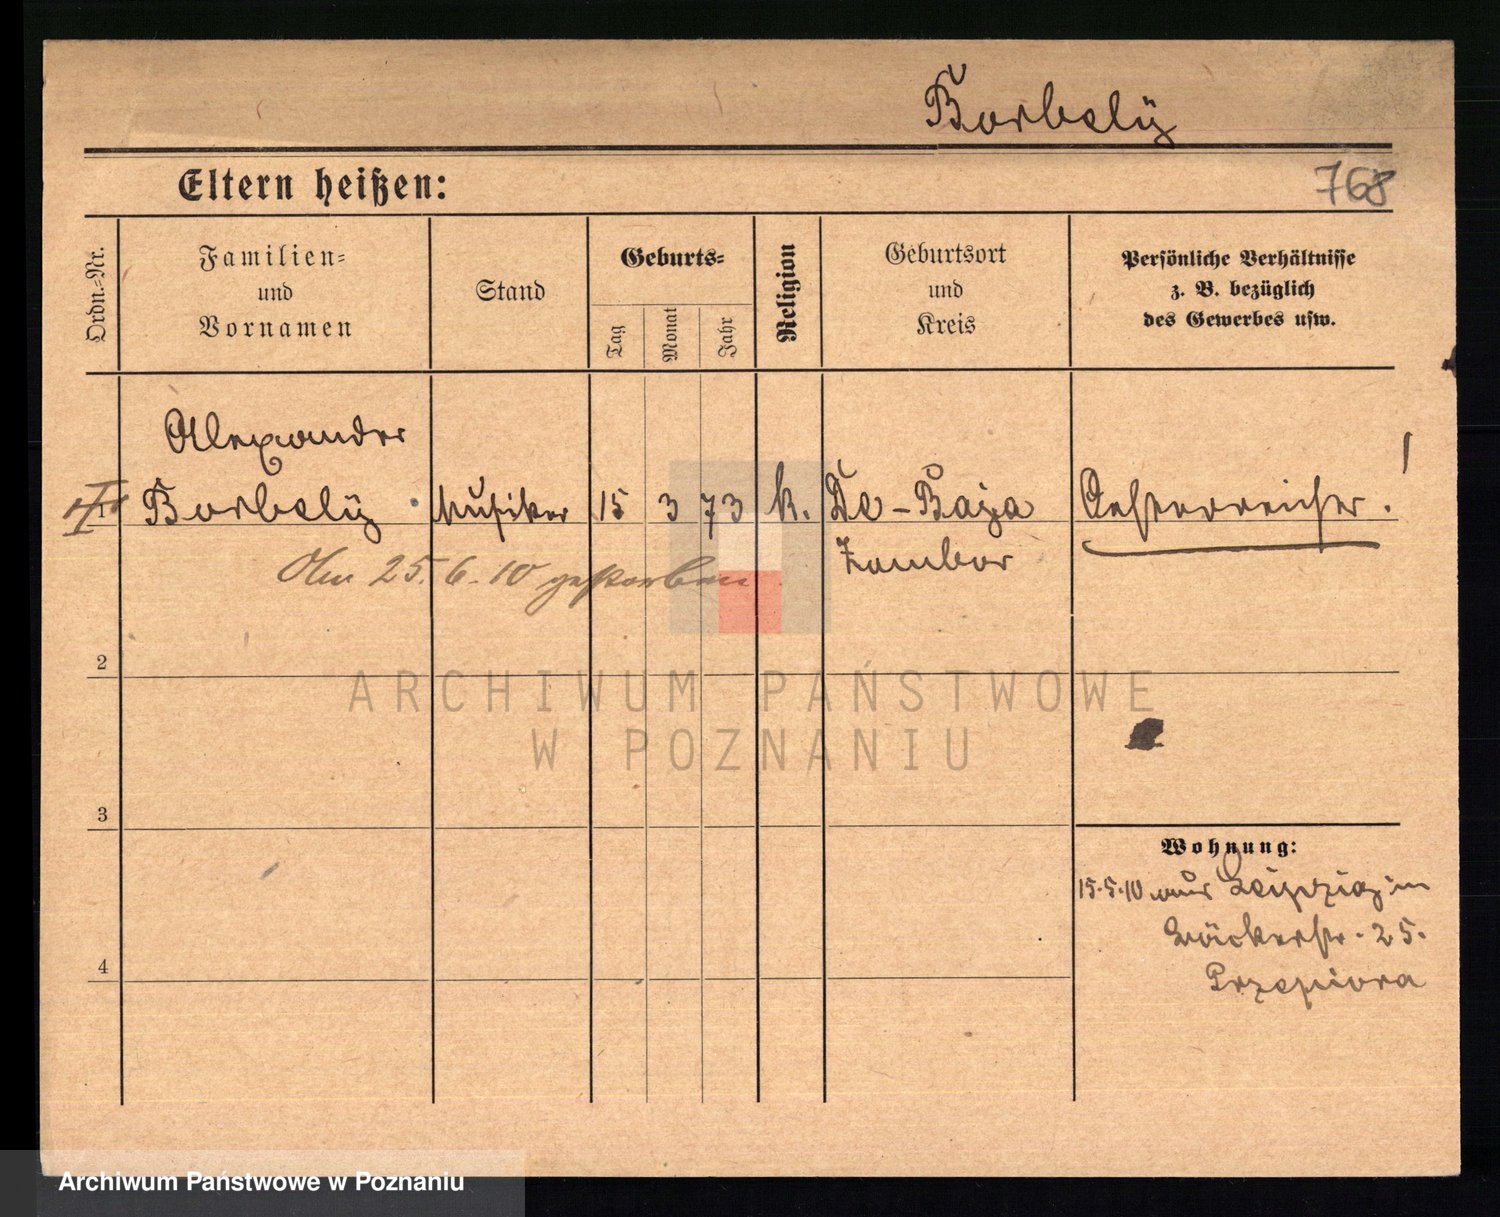 Borbely
Eltern heißen:
768
Ordn.-Nr.
Familien=
und
Vornamen
Stand
Geburts=
Tag
Monat
Jahr
Religion
Geburtsort
und
Kreis
Persönliche Verhältnisse
z. B. bezüglich
des Gewerbes usw.
Alexander
1 Borbelÿ Musiker 15 3 73 k. De-Baja Oesterreicher!
Zombor
Am 25. 6. 10 gestorben
2
ARCHIWUM PAŃSTWOWE
W POZNANIU
3
Wohnung:
15.5.10 aus Leipzig in
Bäckerstr. 25.
Przepiora
4
Archiwum Państwowe w Poznaniu